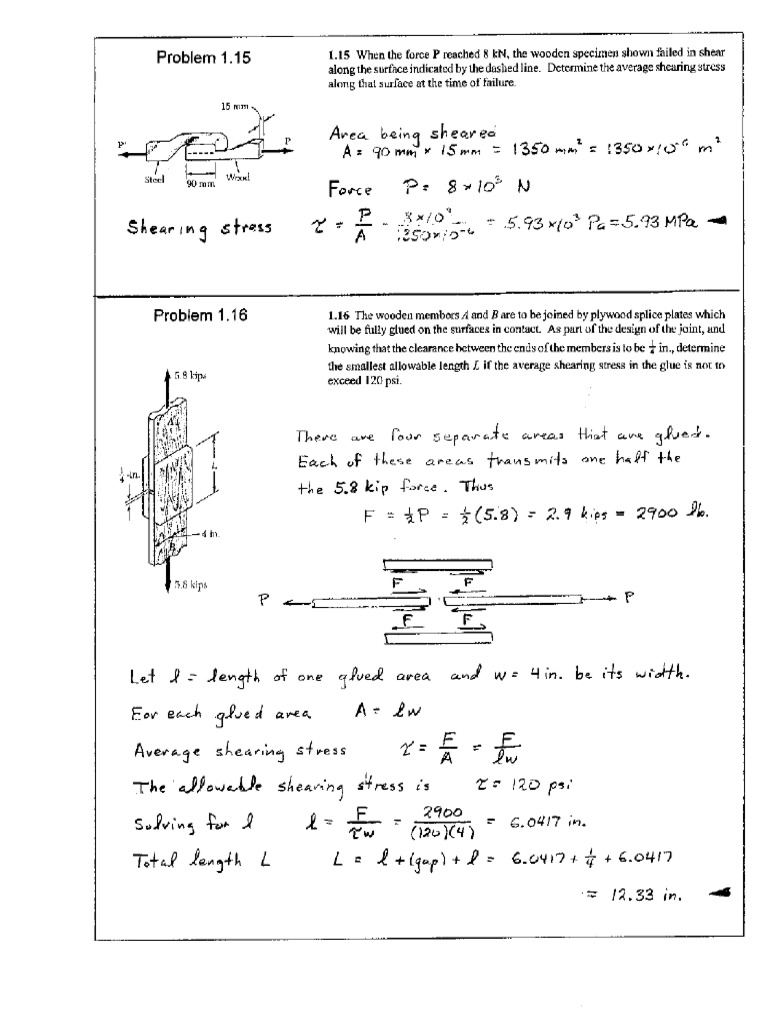 Problem 1.15
1.15 When the force P reached 8 kN, the wooden specimen shown failed in shear
along the surface indicated by the dashed line. Determine the average shearing stress
along that surface at the time of failure.
15 mm
P'
P
Steel
90 mm
Wood
Area being sheared
A = 90 mm × 15 mm = 1350 mm² = 1350 × 10⁻⁶ m²
Force P = 8 × 10³ N
Shearing stress τ = P/A = 8×10³/1350×10⁻⁶ = 5.93 × 10³ Pa = 5.93 MPa
Problem 1.16
1.16 The wooden members A and B are to be joined by plywood splice plates which
will be fully glued on the surfaces in contact. As part of the design of the joint, and
knowing that the clearance between the ends of the members is to be ¼ in., determine
the smallest allowable length L if the average shearing stress in the glue is not to
exceed 120 psi.
5.8 kips
A
L
¼-in.
4 in.
B
5.8 kips
There are four separate areas that are glued.
Each of these areas transmits one half the
the 5.8 kip force. Thus
F = ½P = ½(5.8) = 2.9 kips = 2900 lb.
F F
P P
F F
Let l = length of one glued area and w = 4 in. be its width.
For each glued area A = lw
Average shearing stress τ = F/A = F/lw
The allowable shearing stress is τ = 120 psi
Solving for l l = F/τw = 2900/(120)(4) = 6.0417 in.
Total length L L = l + (gap) + l = 6.0417 + ¼ + 6.0417
= 12.33 in.